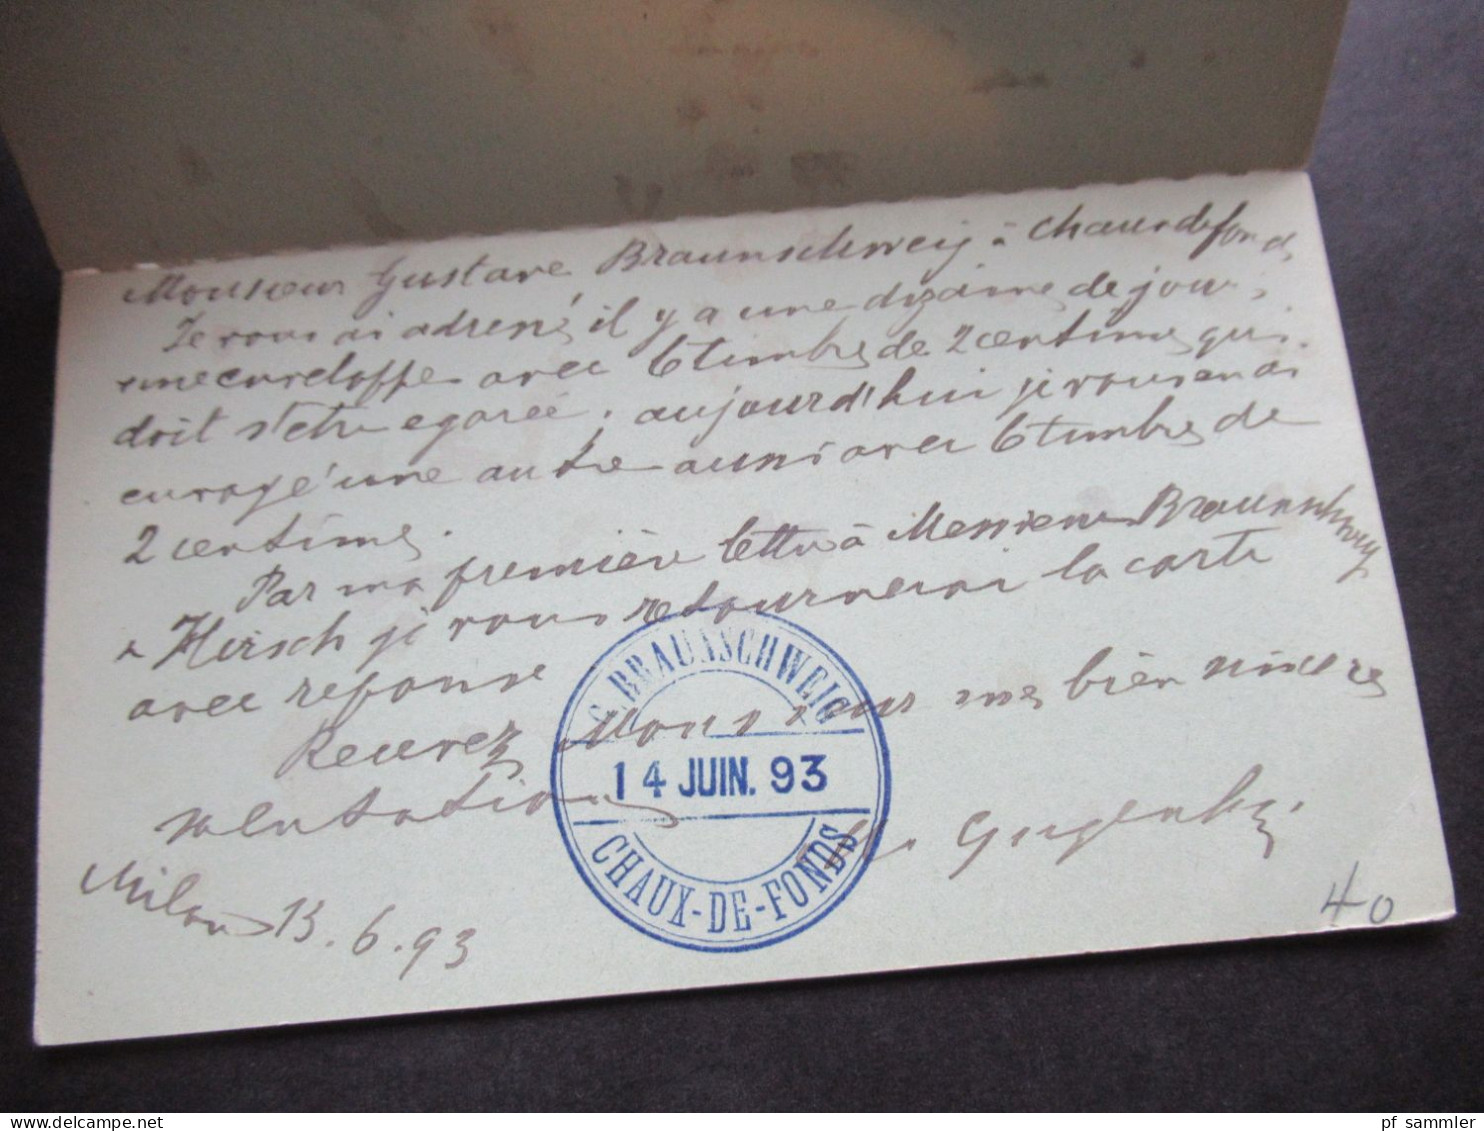 Monsieur Gustave Braunschweig à Chaux de fonds
Je vous ai adressé il y a une dizaine de jours
une enveloppe avec 6 timbres de 2 centimes qui
doit s'etre egarée; aujourd'hui je vous en ai
envoyé une autre aussi avec 6 timbres de
2 centimes.
Par ma première lettre à Messieurs Braunschweig
& Hirsch je vous retournerai la carte
avec reponse
Recevez Monsieur mes bien sincères
salutations
Milan 13.6.93
G. BRAUNSCHWEIG
14 JUIN. 93
CHAUX-DE-FONDS
40
pf_sammler